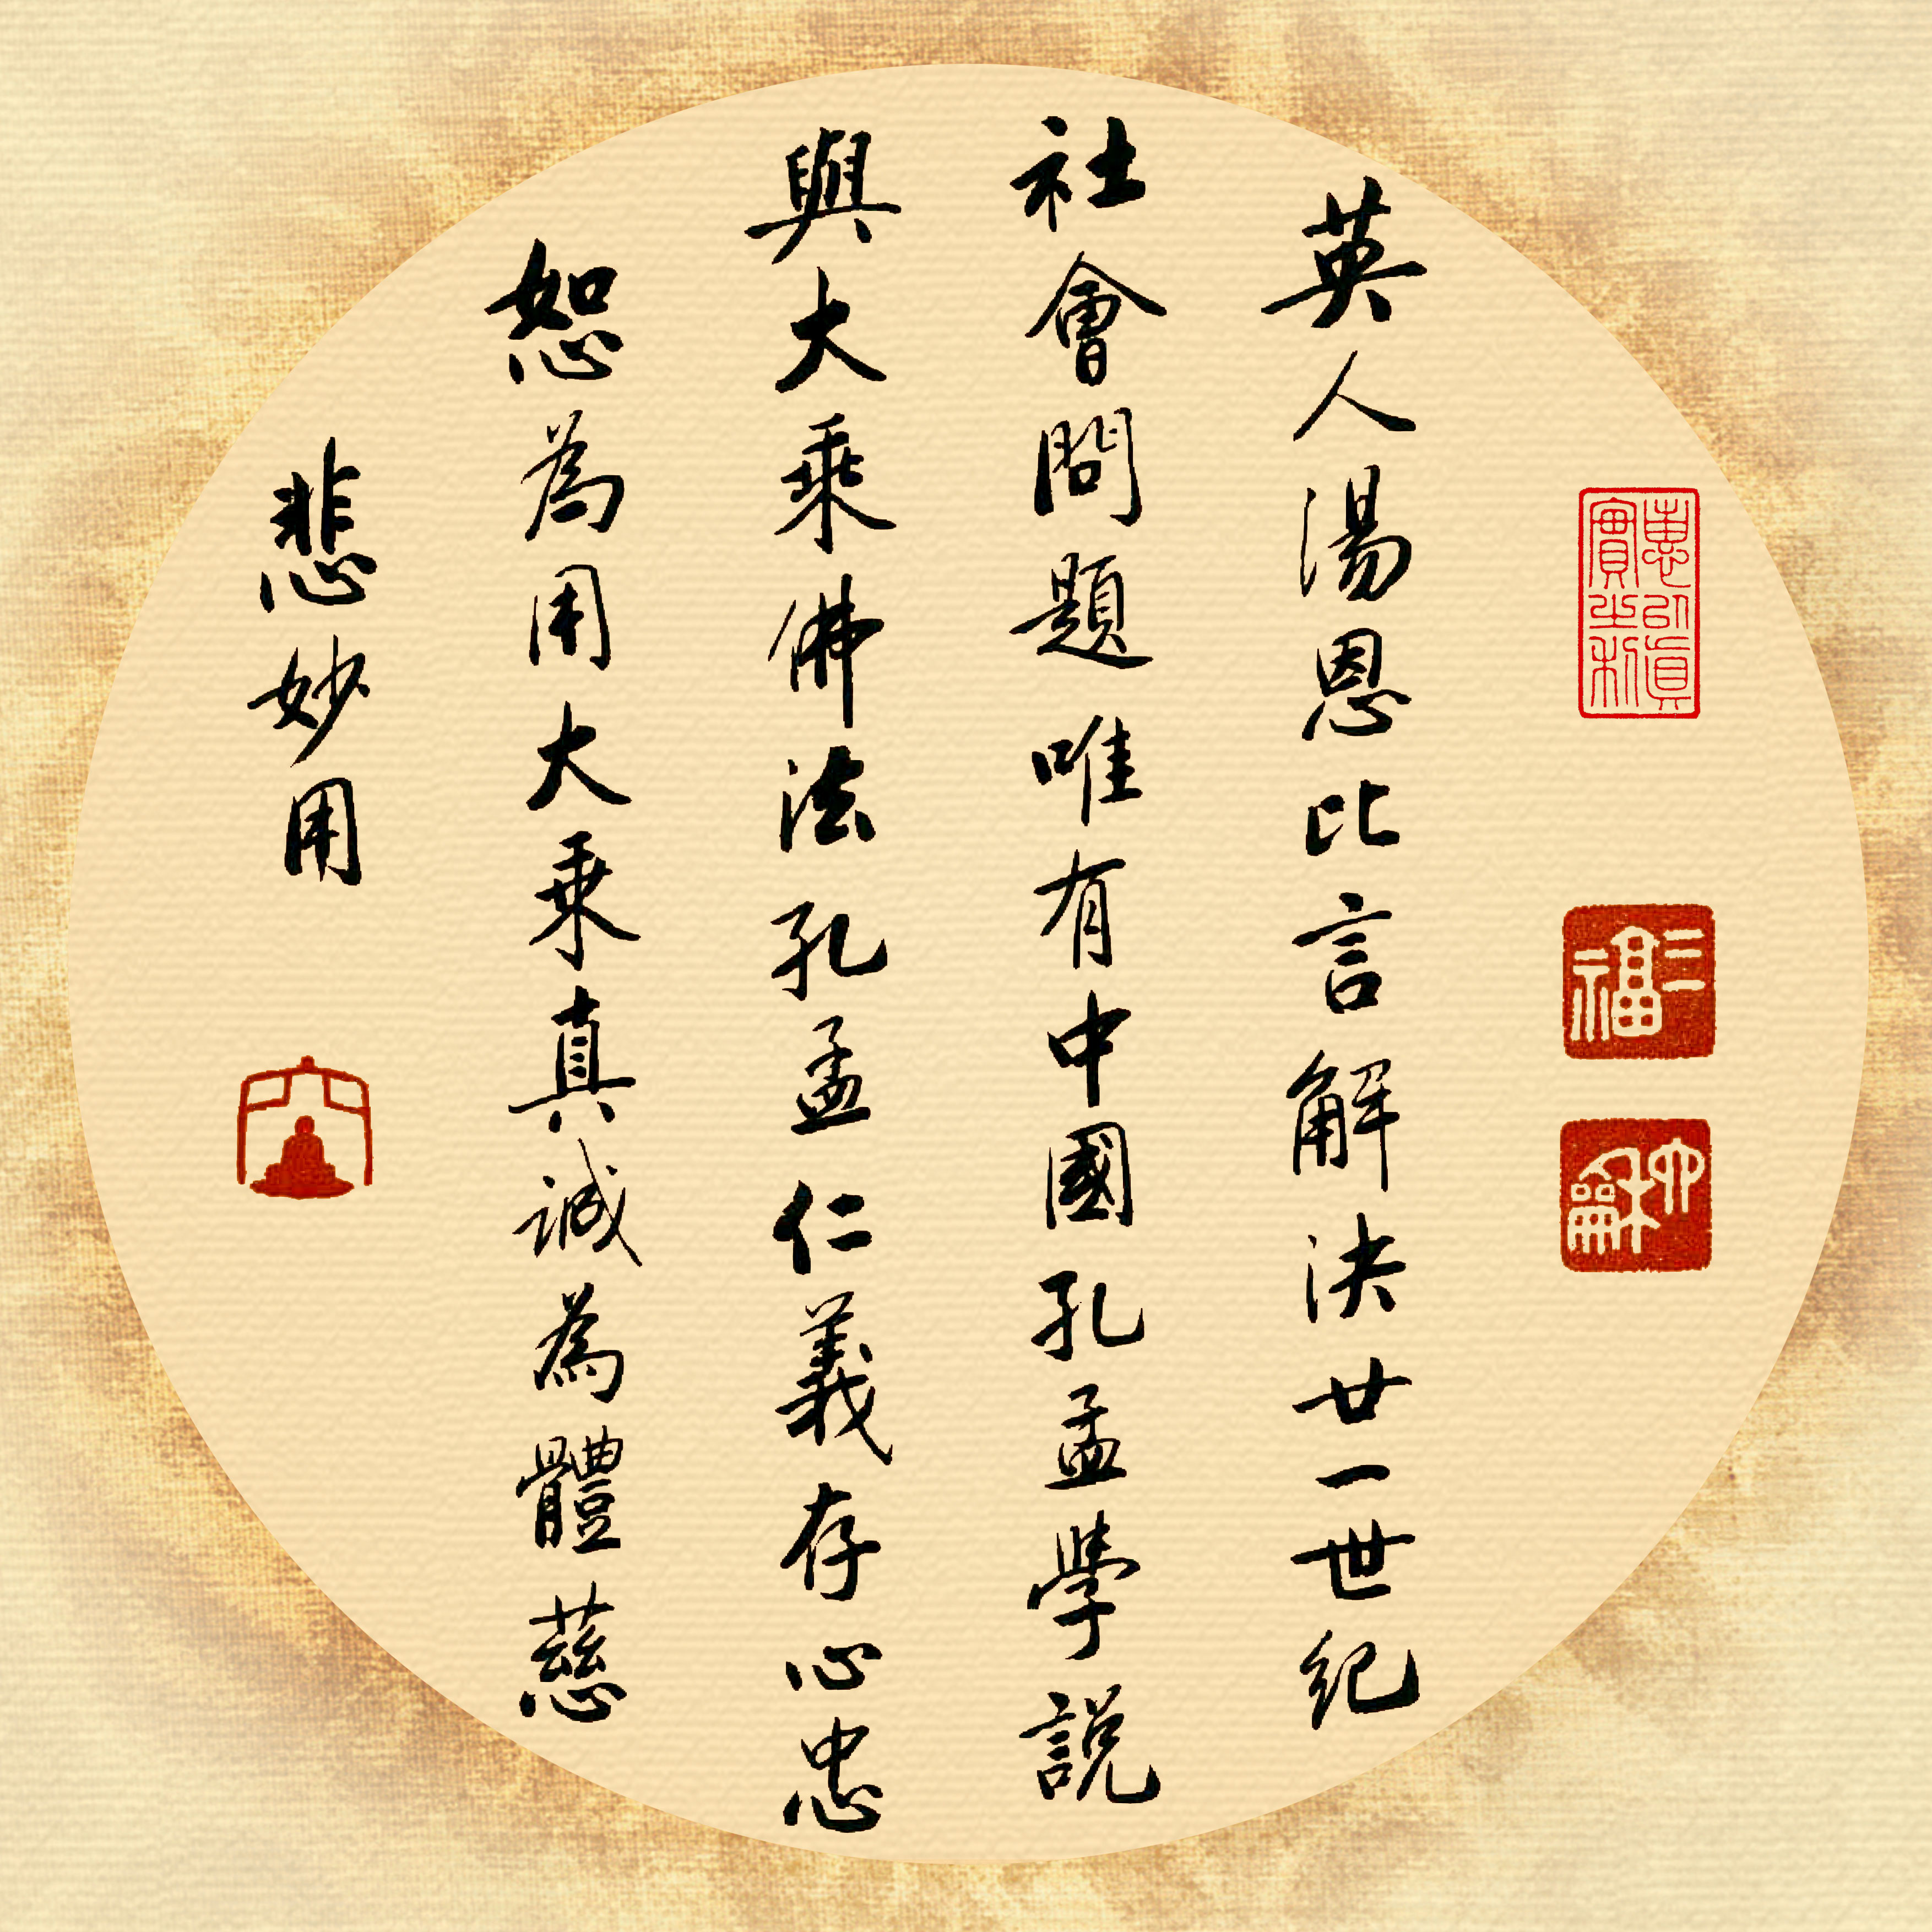 英人湯恩比言解決廿一世紀
社會問題唯有中國孔孟學説
與大乘佛法孔孟仁義存心忠
恕為用大乘真誠為體慈
悲妙用
惠以真
實之利
三福
六和